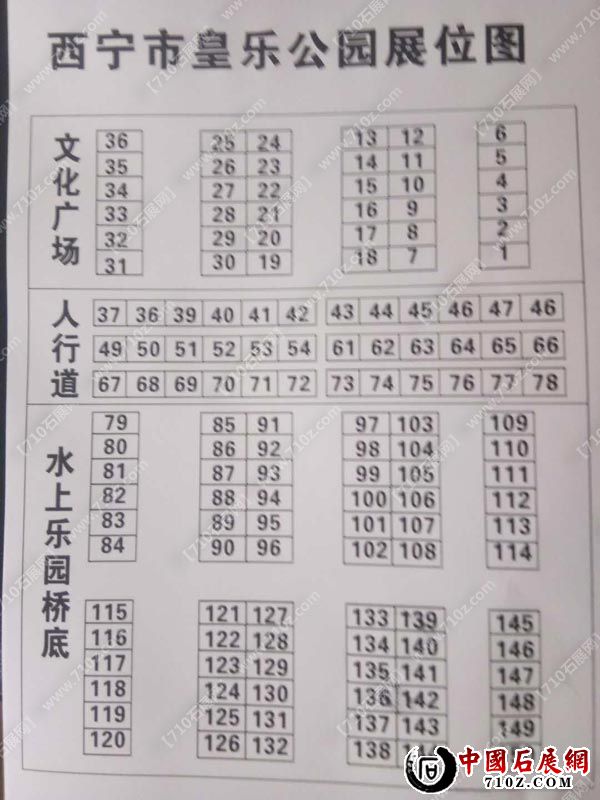 西宁市皇乐公园展位图
文化广场
36 25 24 13 12 6
35 26 23 14 11 5
34 27 22 15 10 4
33 28 21 16 9 3
32 29 20 17 8 2
31 30 19 18 7 1
人行道
37 36 39 40 41 42 43 44 45 46 47 46
49 50 51 52 53 54 61 62 63 64 65 66
67 68 69 70 71 72 73 74 75 76 77 78
水上乐园桥底
79 85 91 97 103 109
80 86 92 98 104 110
81 87 93 99 105 111
82 88 94 100 106 112
83 89 95 101 107 113
84 90 96 102 108 114
115 121 127 133 139 145
116 122 128 134 140 146
117 123 129 135 141 147
118 124 130 136 142 148
119 125 131 137 143 149
120 126 132 138
中國石展網
710z.com
【710石展网】
www.710z.com